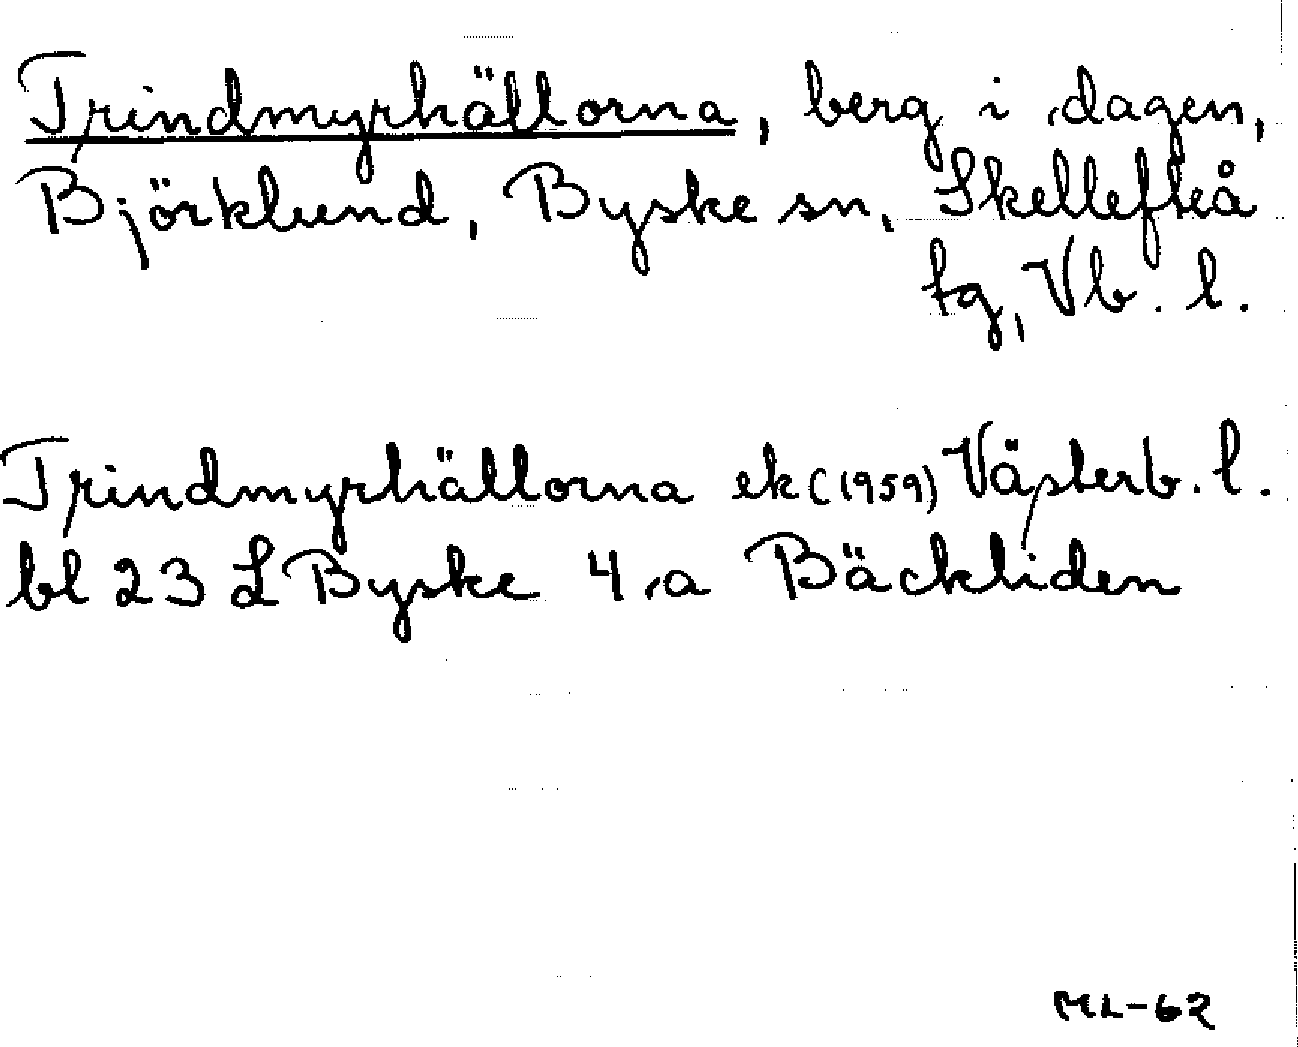 Trindmyrhällorna, berg i dagen,
Björklund, Byske sn, Skellefteå
tg, Vb. l.
Trindmyrhällorna ek (1959) Västerb. l.
bl 23 L Byske 4 a Bäckliden
ML-62